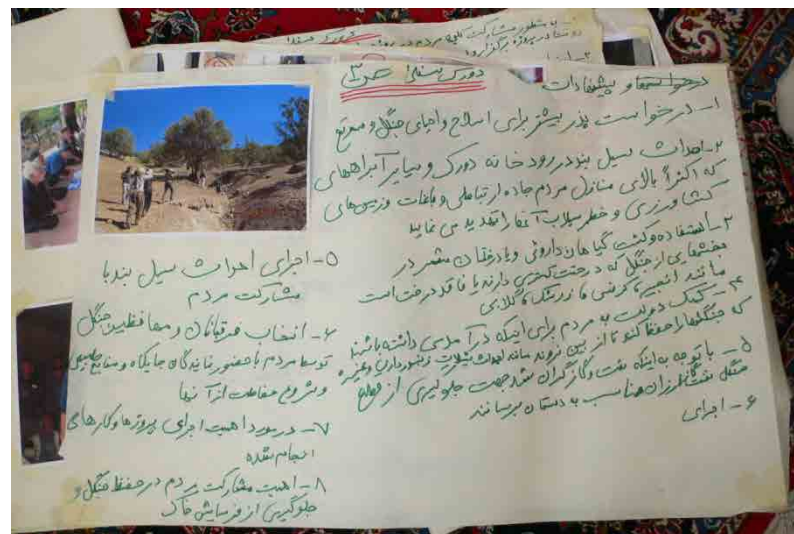 دورک سفلی ص۳
درخواستها و پیشنهادات
۱- درخواست بذر بیشتر برای اصلاح و احیای جنگل و مرتع
۲- احداث سیل بند در رودخانه دورک و سایر آبراههای
که اکثراً بالای منازل مردم جاده ارتباطی و باغات و زمین‌های
کشاورزی و خطر سیلاب آنها را تهدید می نماید
۳- استفاده و کشت گیاهان داروئی و یا درختان مثمر در
بخشهایی از جنگل که درخت کمتری دارند یا فاقد درخت است
مانند انجیر، زرشک، گلابی
۴- کمک دولت به مردم برای اینکه درآمدی داشته باشند
که جنگلها را حفظ کنند تا از بین نروند مانند احداث شیلات زنبورداری و غیره
۵- با توجه به اینکه نفت و گاز گران شد جهت جلوگیری از قطع
جنگل نفت ارزان مناسب به دستمان برسانند
۶- اجرای
۵- اجرای احداث سیل بند با
مشارکت مردم
۶- انتخاب قرقبانان و محافظین جنگل
توسط مردم با حضور نمایندگان جایگاه و منابع طبیعی
و شروع حفاظت از آنها
۷- در مورد اهمیت اجرای پروژه‌ها و کارهای
انجام شده
۸- اهمیت مشارکت مردم در حفظ جنگل و
جلوگیری از فرسایش خاک